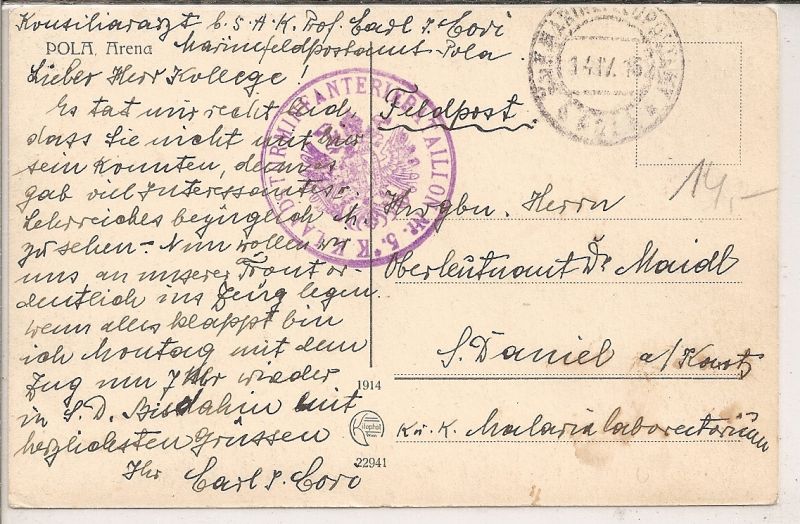 Konsiliararzt b. S. A. K. Prof. Carl v. Cori
POLA Arena
Marinefeldpostamt Pola
Lieber Herr Kollege!
Es tat mir recht leid,
dass Sie nicht mit
sein konnten, denn es
gab viel Interessantes u.
Lehrreiches bezüglich
zu sehen. Nun wollen wir
uns an unserer Front or-
dentlich ins Zeug legen
wenn alles klappt bin
ich Montag mit dem
Zug um 7 Uhr wieder
in S. D. Bis dahin mit
herzlichsten Grüssen
Ihr Carl v. Cori
K. K. LANDSTURMINFANTERIEBATAILLON Nr. 5.
Feldpost.
14.IV.16
POLA
14,-
Hwgbn. Herrn
Oberleutnant Dr. Maidl
S. Daniel a/Karst
K. u. K. Malarialaboratorium
1914
Kilophot
Wien
22941